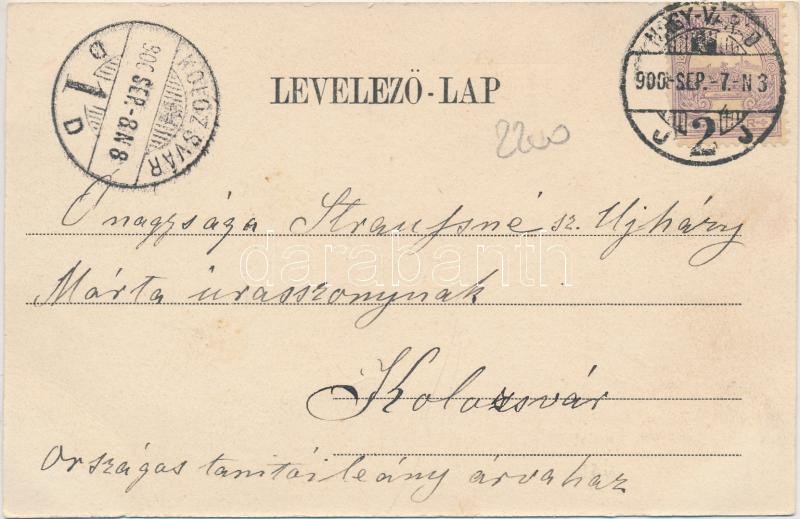 KOLOZSVÁR
900 SEP. -8. N 8
D 1 D
LEVELEZŐ-LAP
NAGY-VÁRAD
900 SEP. -7. N 3
2
2200
Őnagysága Straussné sz. Ujháry
darabanth
Márta úrasszonynak
Kolozsvár
Országos tanítói leány árvaház